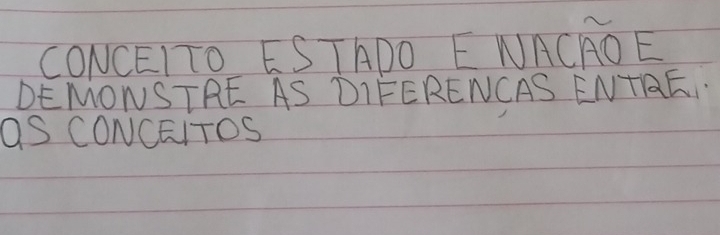 CONCEITO ESTADO E NAÇÃO E
DEMONSTRE AS DIFERENÇAS ENTRE
OS CONCEITOS